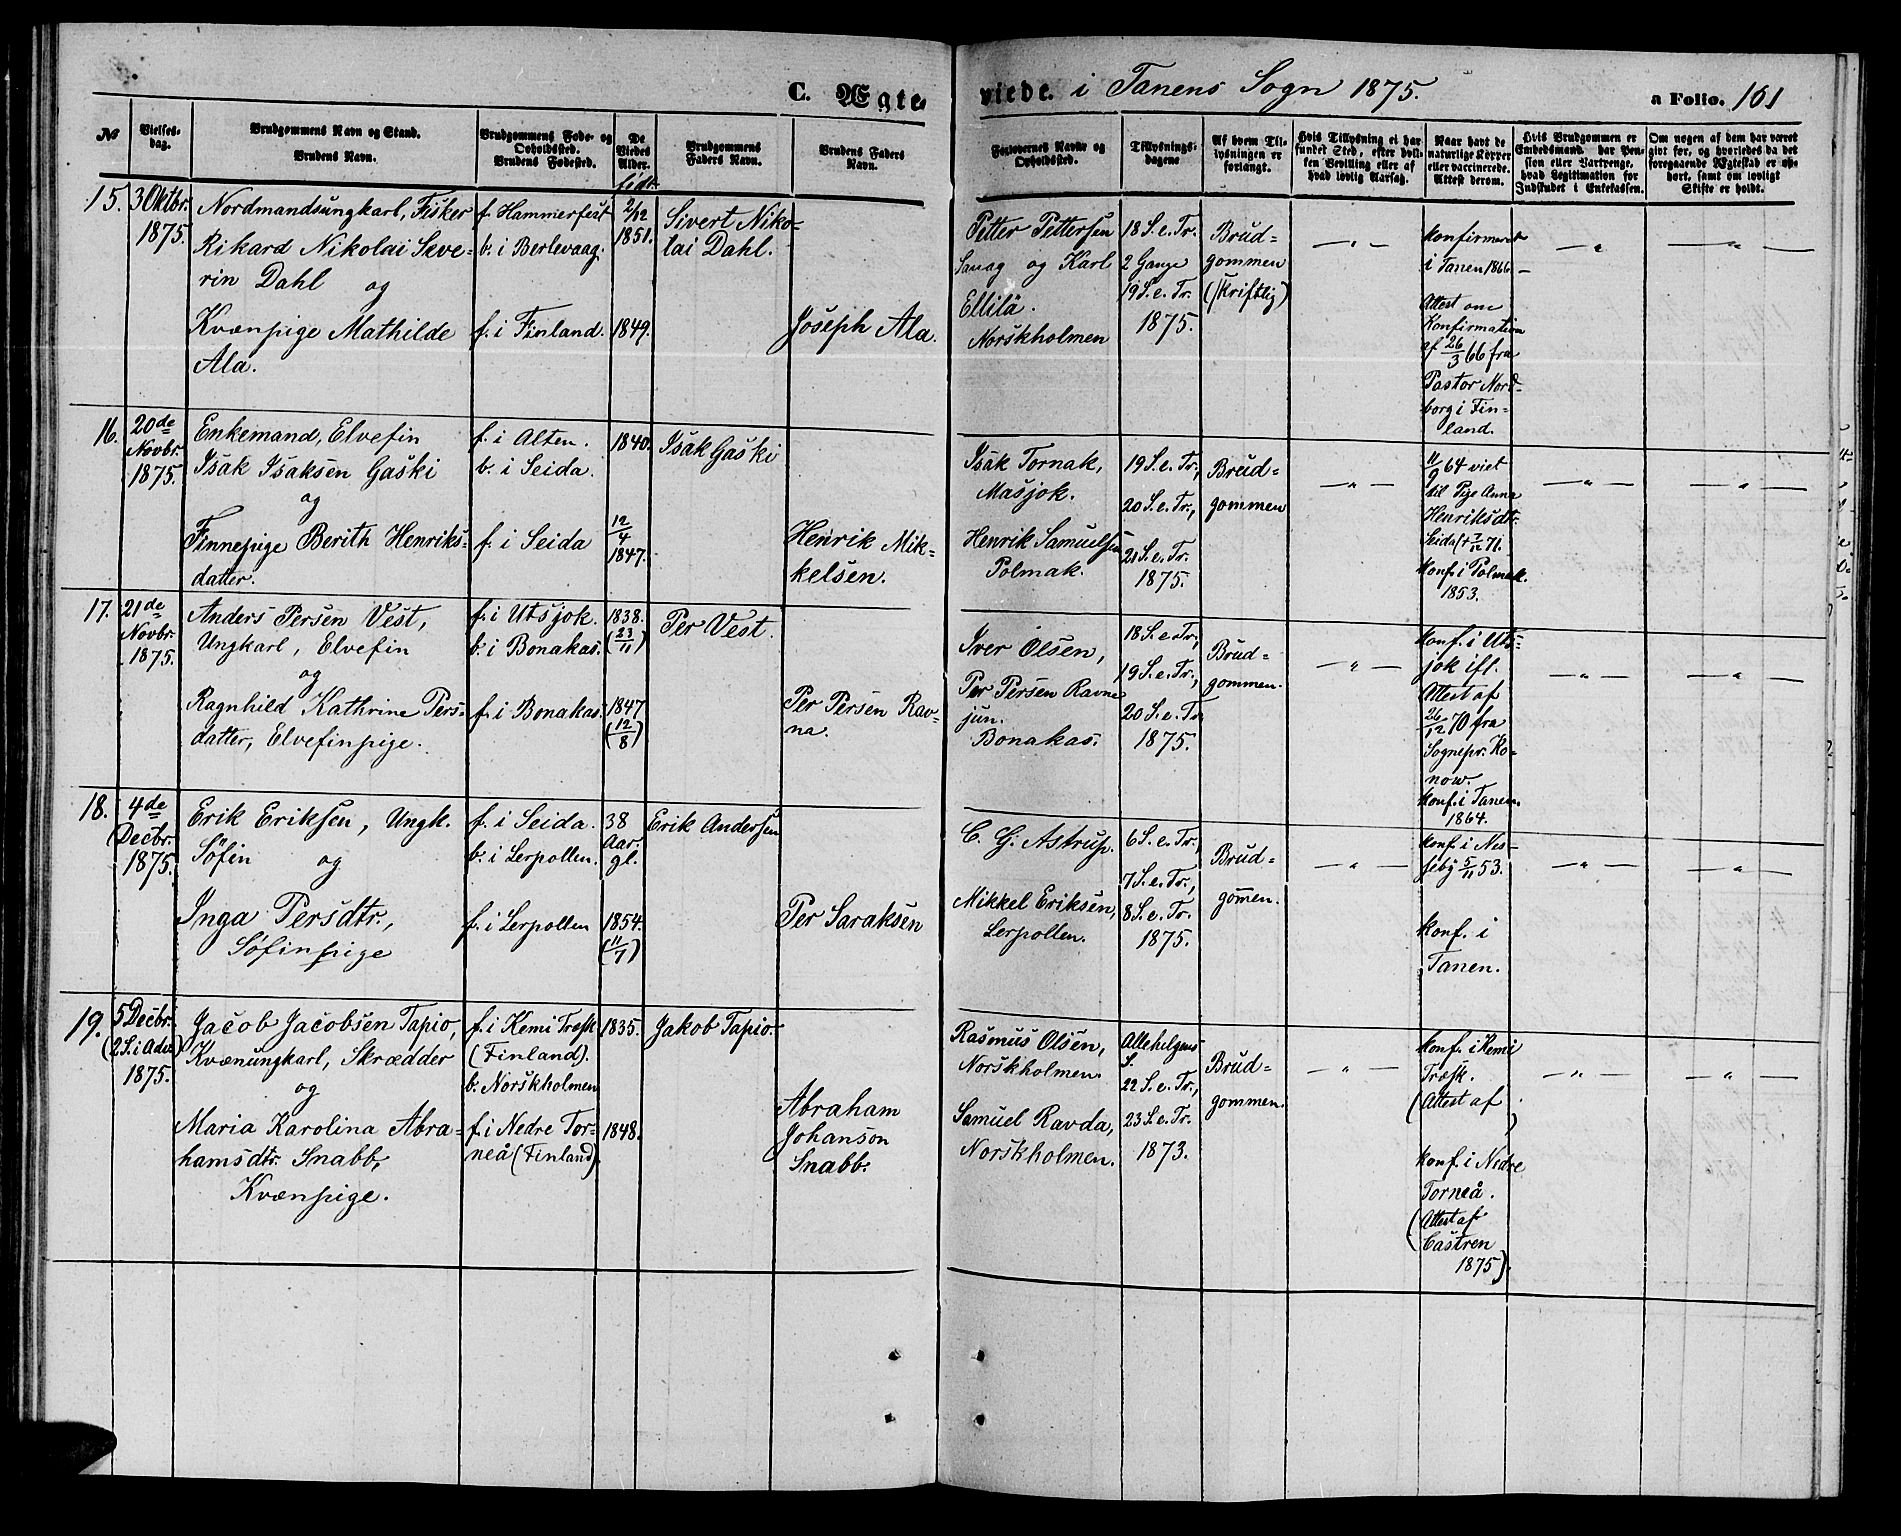 C. Ægte-
viede. i Tanens Sogn 1875.
a Folio. 161
No
Vielses-
dag.
Brudgommens Navn og Stand.
Brudens Navn.
Brudgommens Føde- og
Opholdssted.
Brudens Fødested.
De
Viedes
Alder.
født.
Brudgommens
Faders Navn.
Brudens Faders
Navn.
Forlovernes Navne og
Opholdssted.
Tillysnings-
dagene
Af hvem Til-
lysningen er
forlangt.
Hvis Tillysning ei har
fundet Sted, efter hvil-
ken Bevilling eller af
hvad lovlig Aarsag.
Naar havt de
naturlige Kopper
eller vaccinerede.
Attest derom.
Hvis Brudgommen er
Embedsmand, har Pen-
sion eller Vartpenge,
hvad Legitimation for
Indskudet i Enkekassen.
Om nogen af dem har været
gift før, og hvorledes da det
foregaaende Ægteskab er op-
hørt, samt om lovligt
Skifte er holdt.
15.
3 Oktbr.
1875.
Nordmandsungkarl, Fisker
Rikard Nikolai Seve-
rin Dahl og
Kvænpige Mathilde
Ala.
f. Hammerfest
b. i Berlevaag.
f. i Finland.
2/12
1851.
1849.
Sivert Niko-
lai Dahl.
Joseph Ala.
Petter Pettersen
og Karl
Ellilä.
Norskholmen
18 S. e. Tr.
2 Gange
19 S. e. Tr.
1875.
Brud-
gommen
(skriftlig)
— " —
Konfirmeret
i Tanen 1866
Attest om
Konfirmation
af 26/3 66 fra
Pastor Nord-
borg i Fin-
land.
— " —
— " —
16.
20de
Novbr.
1875.
Enkemand, Elvefin
Isak Isaksen Gaski
og
Finnepige Berith Henriks-
datter.
f. i Alten.
b. i Seida.
f. i Seida
1840.
12/4
1847.
Isak Gaski
Henrik Mik-
kelsen.
Isak Tornak,
Masjok.
Henrik Samuelsen
Polmak.
19 S. e. Tr.,
20 S. e. Tr.,
21 S. e. Tr.
1875.
Brud-
gommen
— " —
11/9 64 viet
til Pige Anna
Henriksdtr.
Seida († 7/12 71.
Konf. i Polmak.
1853.
— " —
— " —
17.
21de
Novbr.
1875.
Anders Persen Vest,
Ungkarl, Elvefin
og
Ragnhild Kathrine Pers-
datter, Elvefinpige.
f. i Utsjok.
b. i Bonakas.
f. i Bonakas.
1838.
(23/11)
1847
(12/8)
Per Vest.
Per Persen Rav-
na.
Iver Olsen,
Per Persen Ravna
jun.
Bonakas.
18 S. e. Tr.,
19 S. e. Tr.,
20 S. e. Tr.
1875.
Brud-
gommen.
— " —
Konf. i Uts-
jok iflg.
Attest af
26/12 70 fra
Sognepr. Ko-
now.
Konf. i Tanen.
1864.
— " —
— " —
18.
4de
Decbr.
1875.
Erik Eriksen, Ungk.
Søfin og
Inga Persdtr,
Søfinpige
f. i Seida.
b. i Lerpollen.
f. i Lerpollen
38
Aar
gl.
1854.
(11/7)
Erik Andersen
Per Saraksen
C. G. Astrup.
Mikkel Eriksen,
Lerpollen.
6 S. e. Tr.,
7 S. e. Tr.,
8 S. e. Tr.
1875.
Brud-
gommen.
— " —
Konf. i Nes-
seby 5/11 53.
Konf. i
Tanen.
— " —
— " —
19.
5 Decbr.
(2 S. i Adv.)
1875.
Jacob Jacobsen Tapio,
Kvænungkarl, Skrædder
og
Maria Karolina Abra-
hamsdtr. Snabb,
Kvænpige.
f. i Kemi Træsk
(Finland).
b. Norskholmen
f. i Nedre Tor-
neå (Finland).
1835.
1848.
Jakob Tapio.
Abraham
Johanson
Snabb.
Rasmus Olsen,
Norskholmen.
Samuel Ravda,
Norskholmen.
Allehelgens
S.
22 S. e. Tr.,
23 S. e. Tr.
1873.
Brud-
gommen.
— " —
Konf. i Kemi
Træsk.
(Attest af )
Konf. i Nedre
Torneå.
(Attest af
Castren
1875).
— " —
— " —